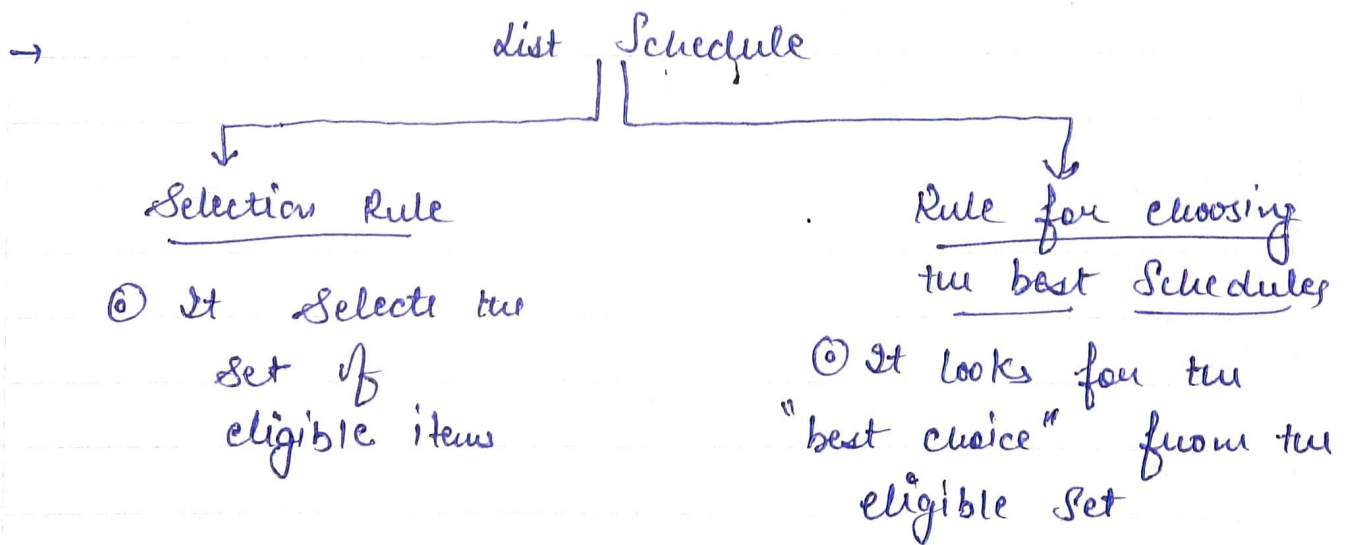 → List Schedule
Selection Rule
It Selects the
Set of
eligible items
Rule for choosing
the best Schedules
It looks for the
"best choice" from the
eligible Set